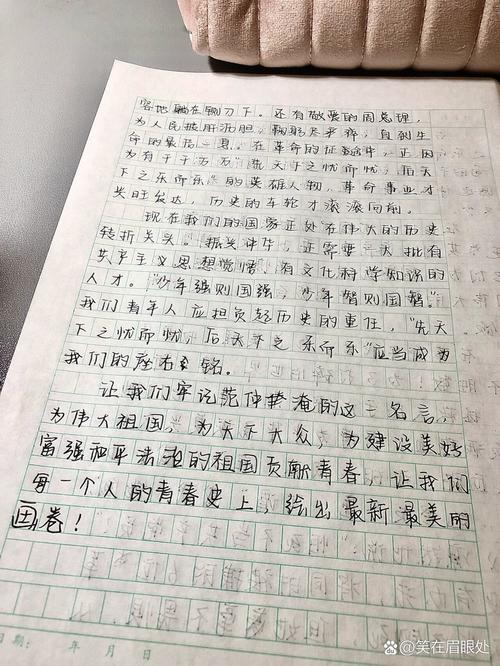 容地躺在铡刀下。还有敬爱的周总理,
为人民披肝沥胆,鞠躬尽瘁,直到生
命的最后一息。在革命的征途中,正因
为有千千万万"先天下之忧而忧,后天
下之乐而乐"的英雄人物,革命事业才
兴旺发达,历史的车轮才滚滚向前。
现在我们的国家正处在伟大的历史
转折关头。振兴中华,还需要一大批有
共产主义思想觉悟,有文化科学知识的
人才。"少年强则国强,少年智则国智。"
我们青年人应担负起历史的重任,"先天
下之忧而忧,后天下之乐而乐"应当成为
我们的座右铭。
让我们牢记范仲淹的这一名言,
为伟大祖国,为天下大众,为建设美好
富强和平法治的祖国贡献青春,让我们
每一个人的青春史上绘出最新最美的
画卷!
日期: 年 月 日
笑在眉眼处